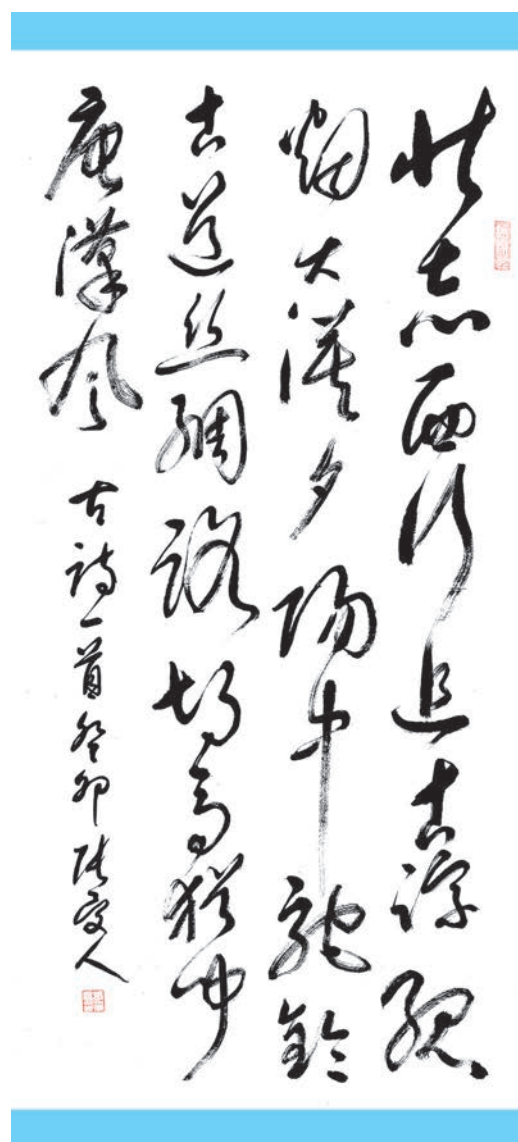 壮志西行追古踪孤
烟大漠夕阳中驼铃
古道丝绸路胡马犹闻
唐汉风
古诗一首癸卯张人